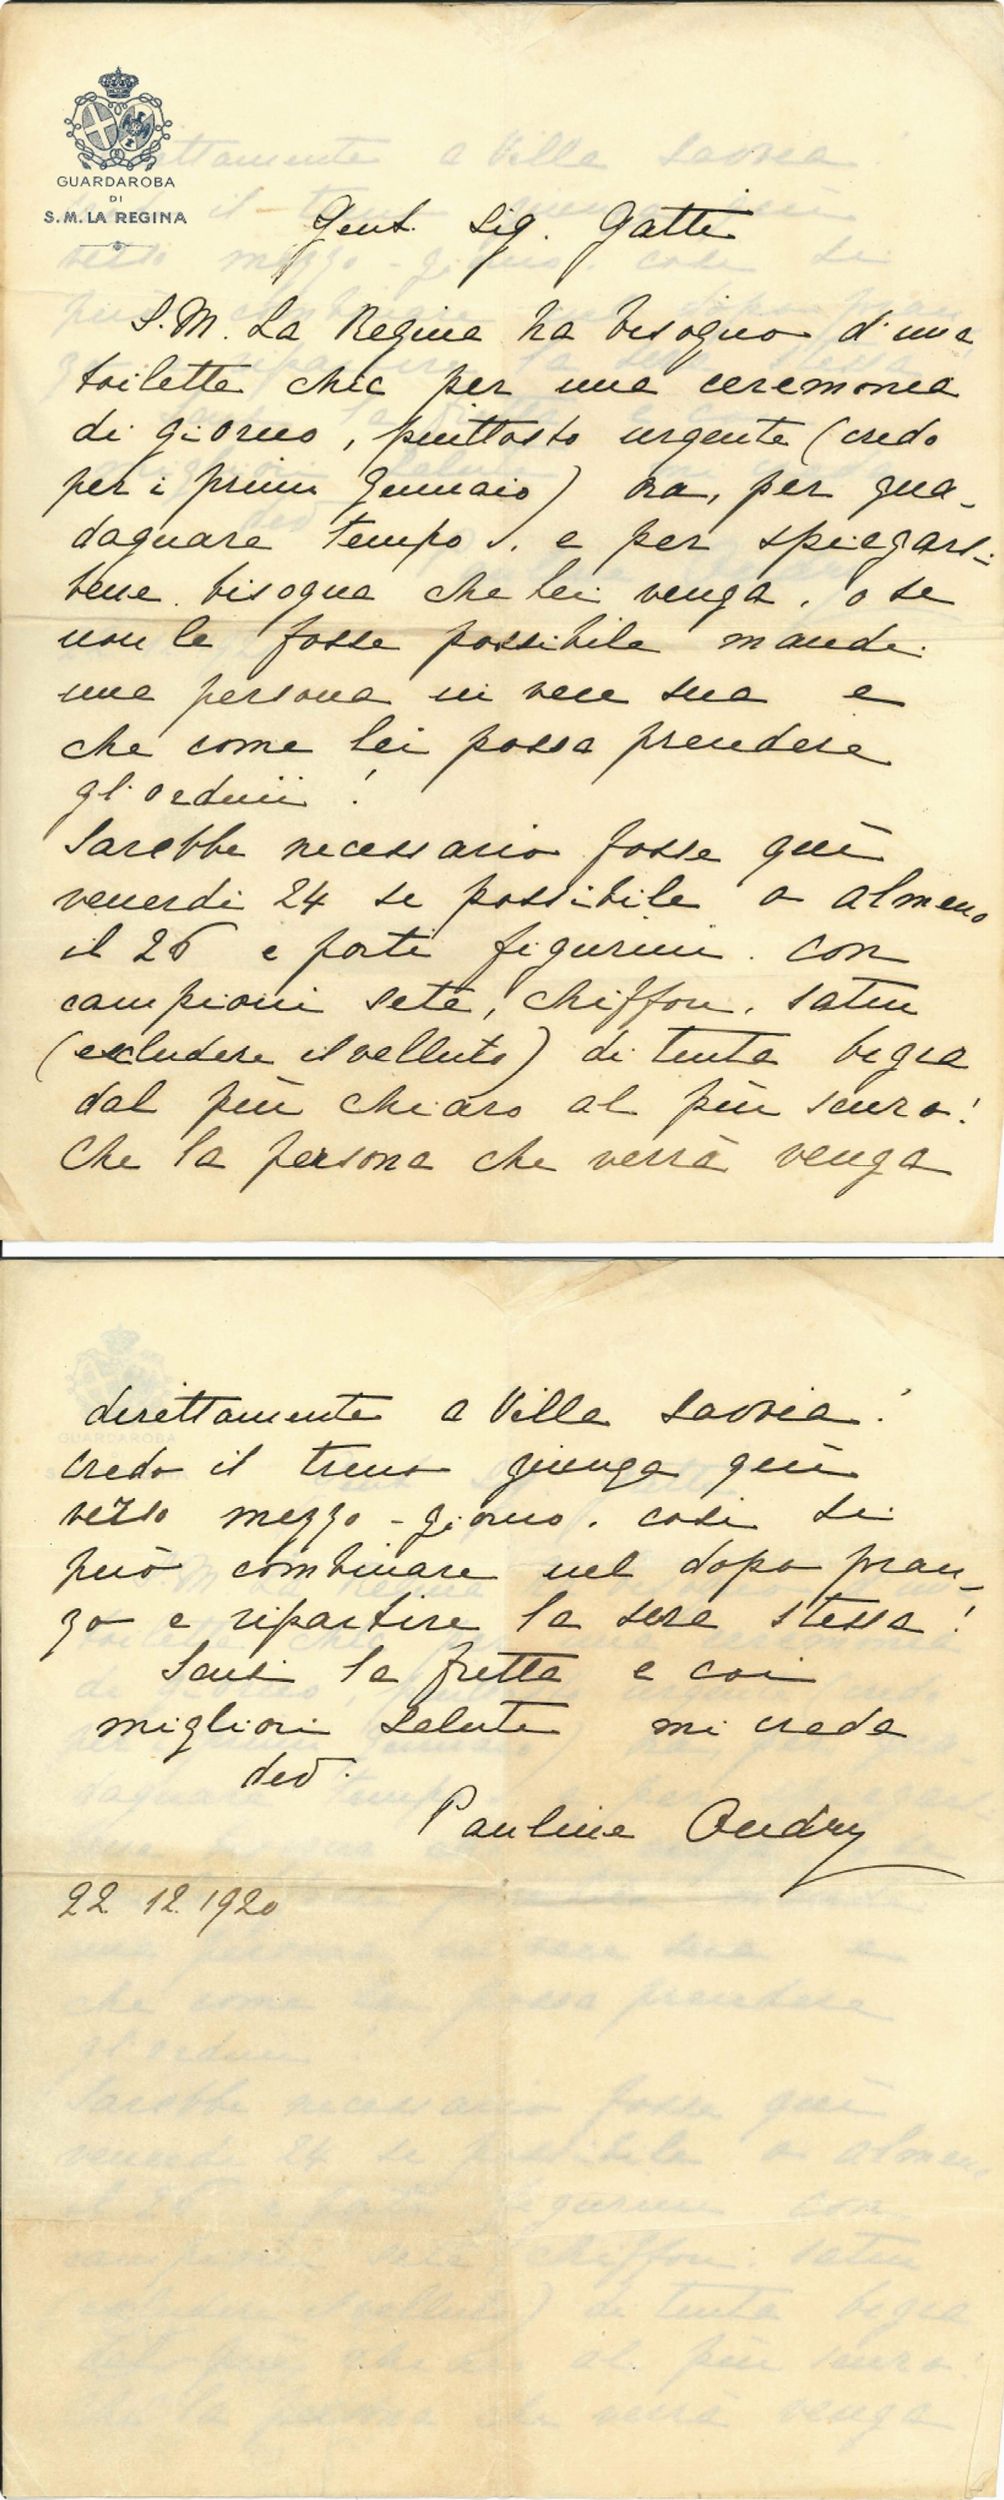 GUARDAROBA
DI
S.M. LA REGINA
Gent. Sig. Gatti
S.M. La Regina ha bisogno d'una
toilette chic per una ceremonia
di giorno, piuttosto urgente (credo
per i primi Gennaio) ora, per gua-
dagnare tempo, e per spiegarsi
bene. bisogna che lei venga, o se
non le fosse possibile mandi
una persona in vece sua e
che come lei possa prendere
gl'ordini!
Sarebbe necessario fosse quì
venerdi 24 se possibile o almeno
il 26 e porti figurini. con
campioni sete, chiffon, satin
(excludere il velluto) di tinta bigia
dal più chiaro al più scuro!
Che la persona che verrà venga
direttamente a Villa Savoia!
Credo il treno giunga quì
verso mezzo-giorno. cosi si
può combinare nel dopo pran-
zo e ripartire la sera stessa!
Scusi la fretta e coi
migliori saluti mi creda
dev.
Pauline
22 12 1920